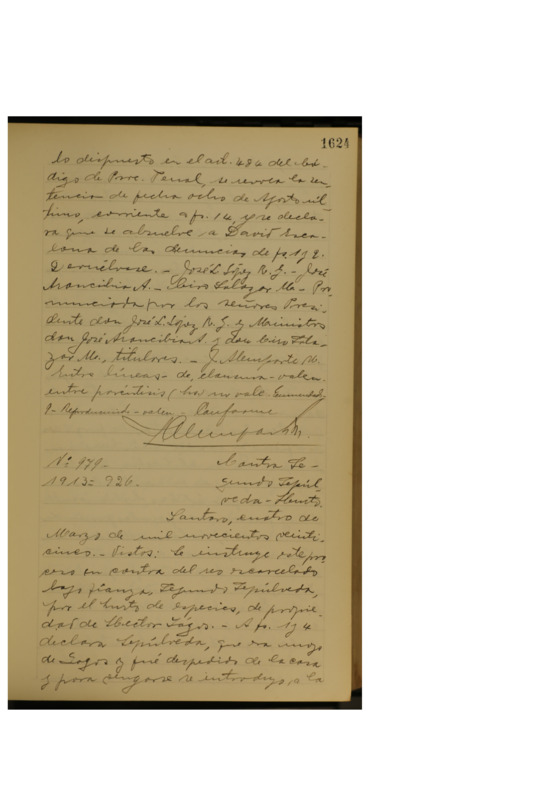 1624
lo dispuesto en el art. 484 del Có-
digo de Proc. Penal, se revoca la sen-
tencia de fecha ocho de Agosto úl-
timo, corriente a fs. 14, y se decla-
ra que se absuelve a David Esca-
lona de las denuncias de fs. 1 y 2.
Devuélvase. - José L. López R. G. - José
Arancibia A. - Ciro Salazar M. - Pro-
nunciada por los señores Presi-
dente don José L. López R. G. y Ministros
don José Arancibia A. y don Ciro Sala-
zar M., titulares. - J. Alemparte M.
Entre líneas - de, clausura - valen.
entre paréntesis (ha) no vale.
9 - Reproduciendo - valen. Conforme
Nº 979. Contra Se-
1913 = 926. gundo Sepúl-
veda - Hurto.
Santiago, cuatro de
Marzo de mil novecientos veinti-
cinco. - Vistos: Se instruye este pro-
ceso en contra del reo excarcelado
bajo fianza, Segundo Sepúlveda,
por el hurto de especies, de propie-
dad de Hector Lagos. - A fs. 1 y 4
declara Sepúlveda, que era mozo
de Lagos y fué despedido de la casa
y para vengarse se introdujo, a la